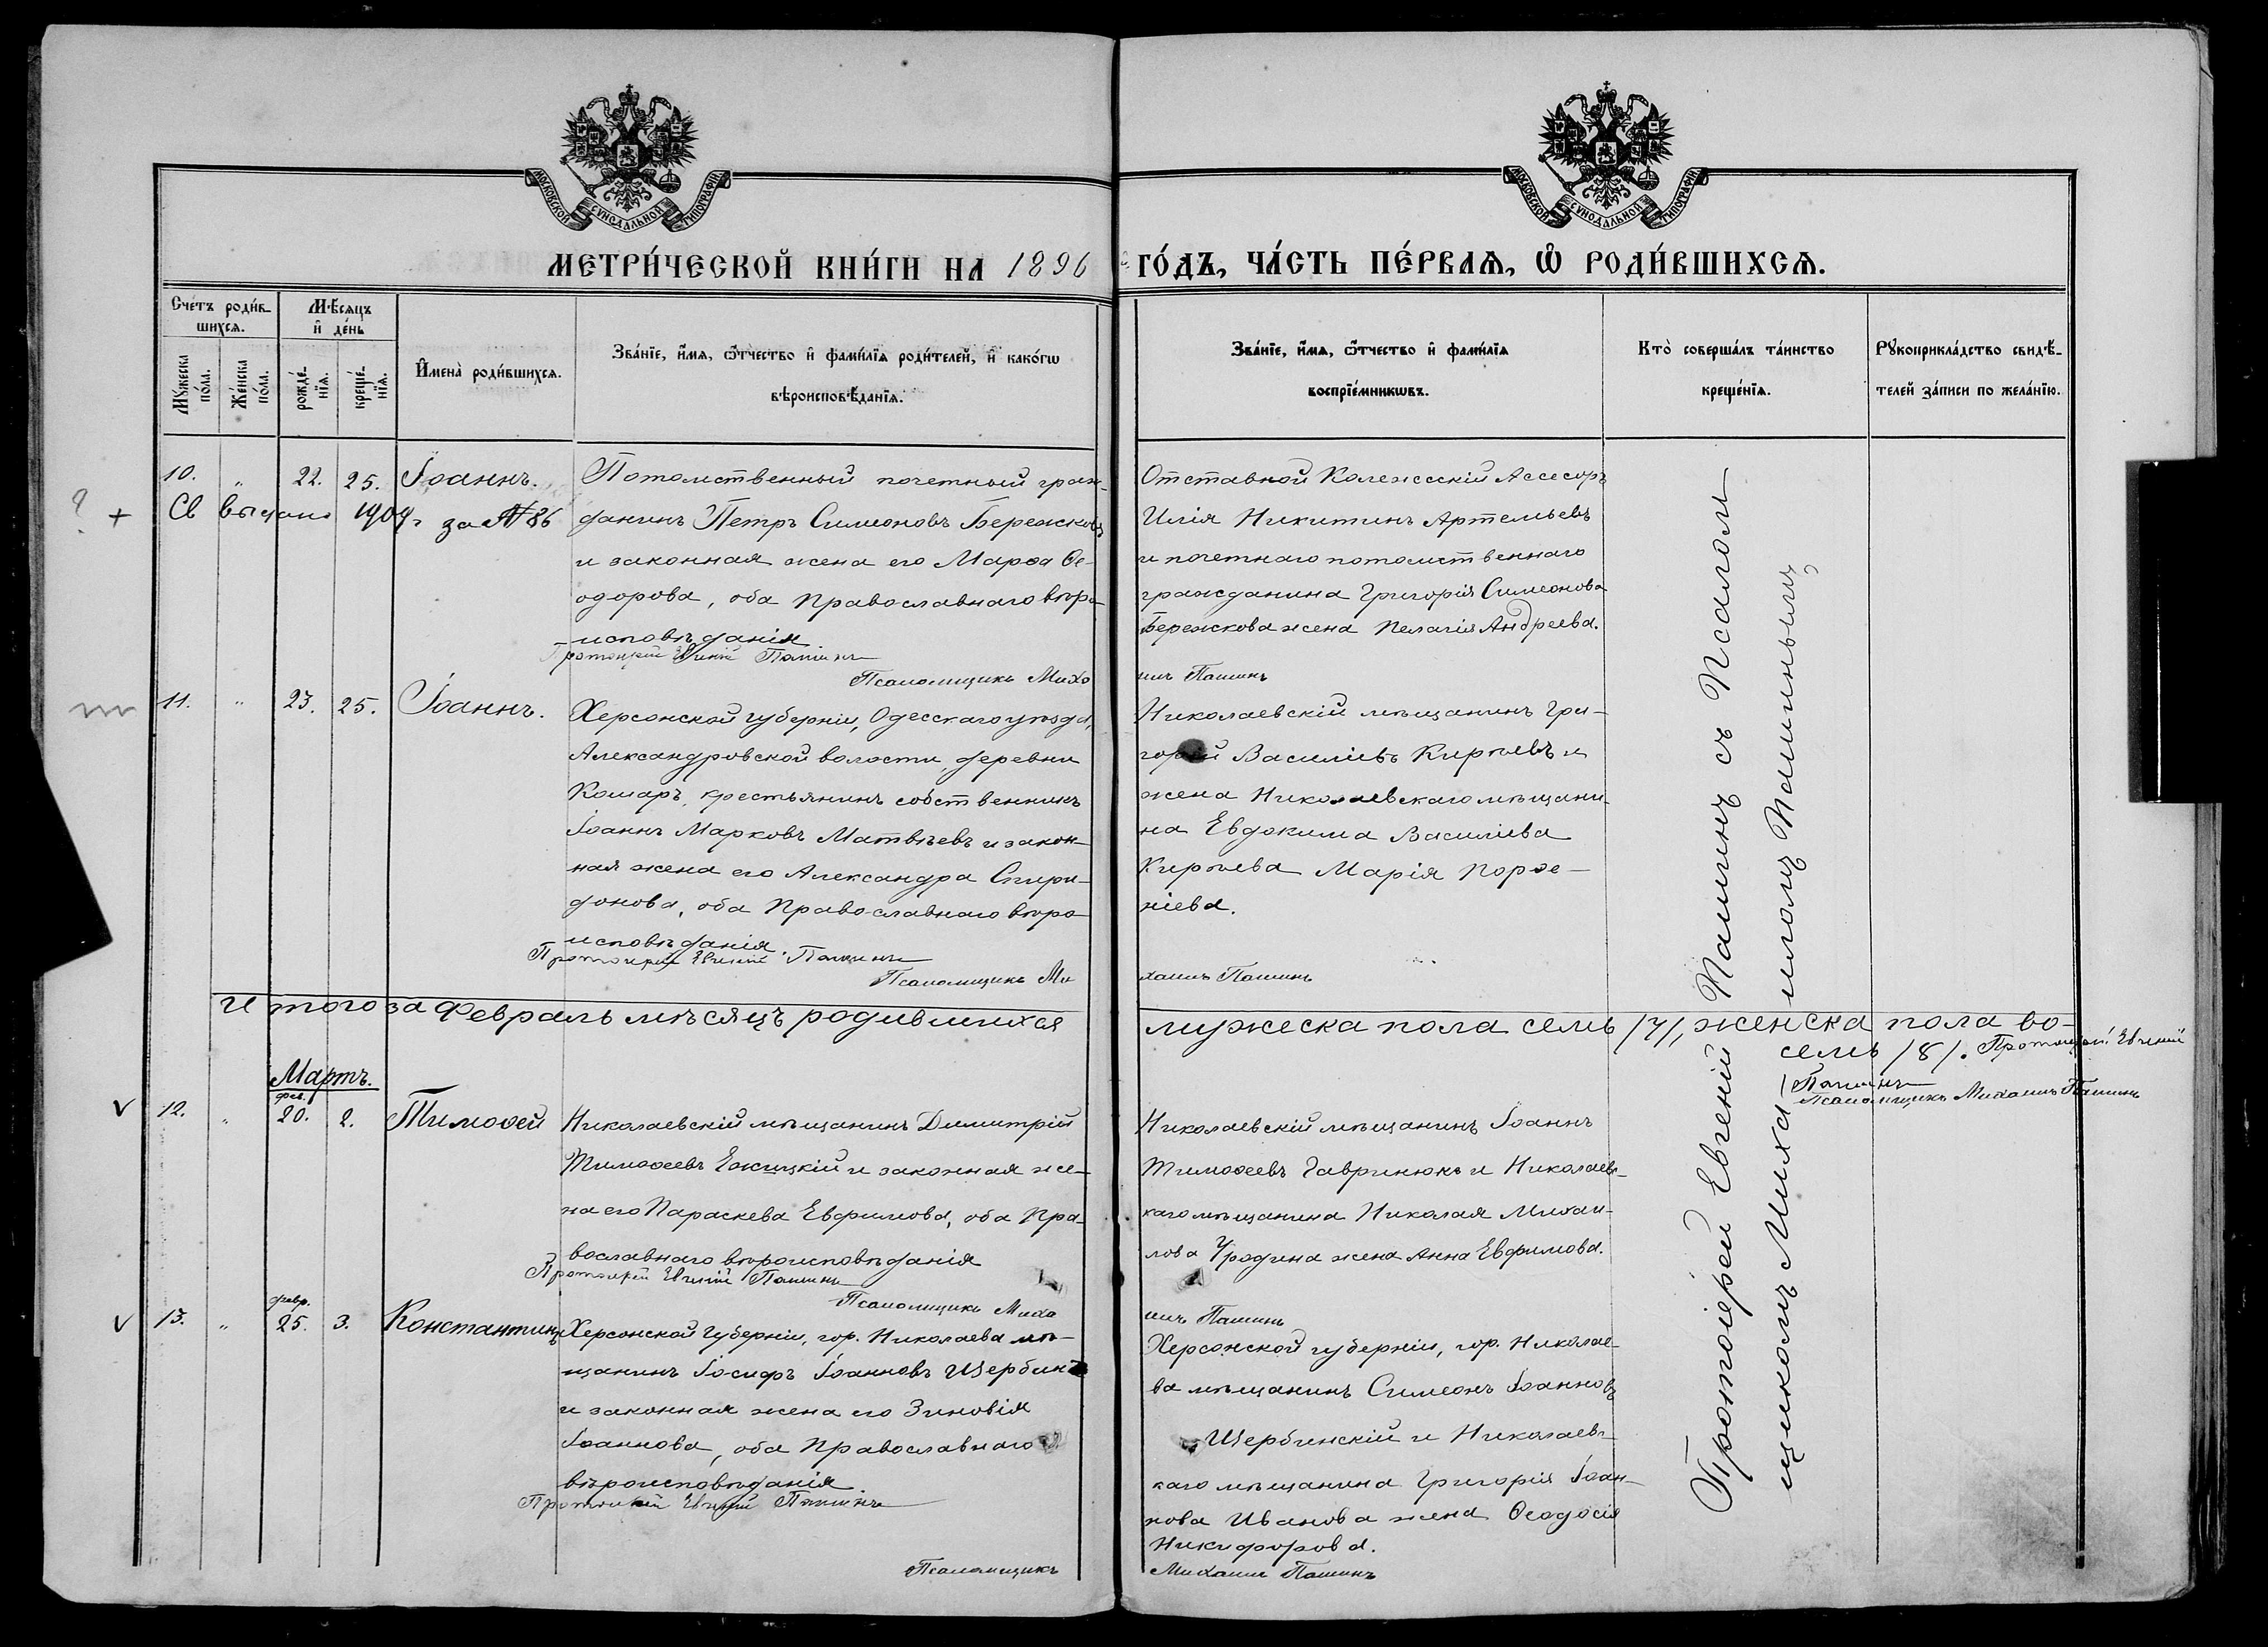 МОСКОВСКОЙ СУНОДАЛЬНОЙ ТИПОГРАФІИ
МОСКОВСКОЙ СУНОДАЛЬНОЙ ТИПОГРАФІИ
МЕТРИ́ЧЕСКОЙ КНИ́ГИ НА 1896
ГО́ДЪ, ЧА́СТЬ ПЕ́РВАѦ, Ѡ РОДИ́ВШИХСѦ.
Сче́тъ роди́в-
шихсѧ.
Мꙋ́жеска
по́ла.
Же́нска
по́ла.
Мѣ́сѧцъ
и҆ де́нь
рожде́-
нїѧ.
креще́-
нїѧ.
И҆мена̀ роди́вшихсѧ.
Зва́нїе, и҆́мѧ, ѻ҆́тчество и҆ фами́лїѧ роди́телей, и҆ како́гѡ
вѣроисповѣ́данїѧ.
Зва́нїе, и҆́мѧ, ѻ҆́тчество и҆ фами́лїѧ
воспрїе́мникѡвъ.
Кто̀ соверша́лъ та́инство
креще́нїѧ.
Рꙋкоприкла́дство свидѣ́-
телей за́писи по жела́нїю.
10. " 22. 25. Іоаннъ.
Св выдано 1909 г за № 86
Потомственный почетный граж-
данинъ Петръ Симеоновъ Бережковъ
и законная жена его Марѳа Ѳе-
одорова, оба Православнаго вѣро-
исповѣданія
Протоіерей Евгеній Пашинъ
Псаломщикъ Миха
Отставной Коллежскій Ассесоръ
Илія Никитинъ Артемьевъ
и почетнаго потомственнаго
гражданина Григорія Симеонова
Бережкова жена Пелагія Андреева.
илъ Пашинъ
11. " 23. 25. Іоаннъ.
Херсонской губерніи, Одесскаго уѣзда,
Александровской волости, деревни
Комаръ, крестьянинъ собственникъ
Іоаннъ Марковъ Матвѣевъ и закон-
ная жена его Александра Спири-
донова, оба Православнаго вѣро
исповѣданія.
Протоіерей Евгеній Пашинъ
Псаломщикъ Ми
Николаевскій мѣщанинъ Гри-
горій Василіевъ Кирѣевъ и
жена Николаевскаго мѣщани-
на Евдокима Василіева
Кирѣева Марія Порѳе-
ніева.
хаилъ Пашинъ
Итого за Февраль мѣсяцъ родившихся
мужеска пола семь /7/, женска пола во-
семь /8/. Протоіерей Евгеній
Пашинъ
Псаломщикъ Михаилъ Пашинъ
Мартъ.
фев.
12. " 20. 2. Тимоѳей
Николаевскій мѣщанинъ Димитрій
Тимоѳеевъ Ежицкій и законная же-
на его Параскева Евфимова, оба Пра-
вославнаго вѣроисповѣданія
Протоіерей Евгеній Пашинъ
Псаломщикъ Миха
Николаевскій мѣщанинъ Іоаннъ
Тимоѳеевъ Гавринюкъ и Николаевс-
каго мѣщанина Николая Михаи-
лова Уродина жена Анна Евфимова.
илъ Пашинъ
февр.
13. " 25. 3. Константинъ
Херсонской губерніи, гор. Николаева мѣ-
щанинъ Іосифъ Іоанновъ Щербин
и законная жена его Зиновія
Іоаннова, оба Православнаго
вѣроисповѣданія
Протоіерей Евгеній Пашинъ
Псаломщикъ
Херсонской губерніи, гор. Николае-
ва мѣщанинъ Симеонъ Іоанновъ
Щербинскій и Николаевс-
каго мѣщанина Григорія Іоан-
нова Иванова жена Ѳеодосія
Никифорова.
Михаилъ Пашинъ
Протоіерей Евгеній Пашинъ съ Псаломъ
щикомъ Михаиломъ Пашинымъ